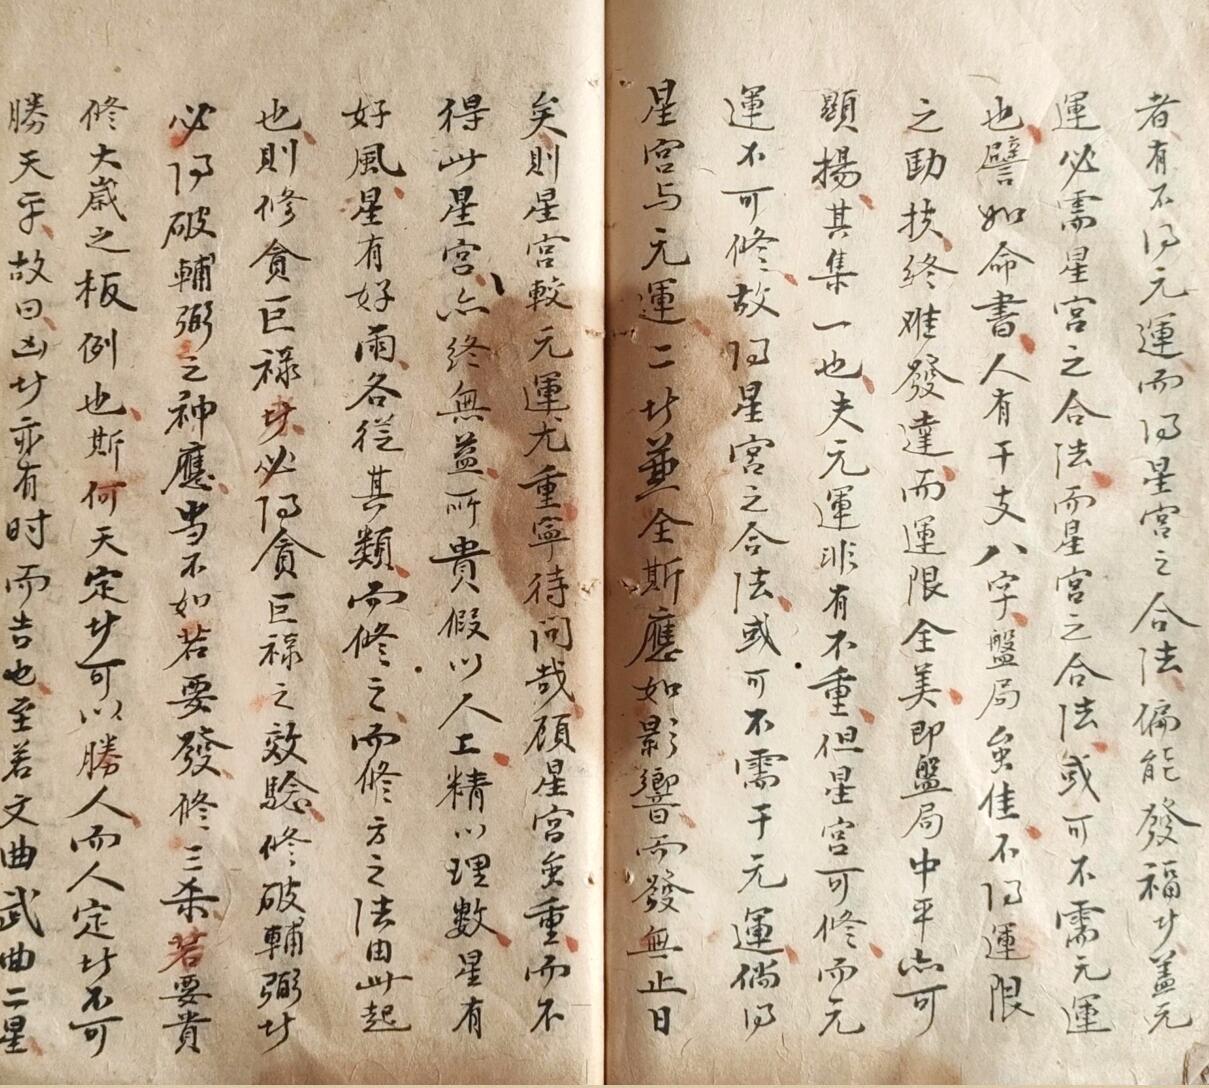 者有不得元運而得星宮之合法偏能發福者蓋元
運必需星宮之合法而星宮之合法或可不需元運
也譬如命書人有干支八字盤局虽佳不得運限
之助扶终难發達而運限全美即盤局中平亦可
顕揚其集一也夫元運非有不重但星宮可修而元
運不可修故得星宮之合法或可不需于元運倘得
星宮与元運二者兼全斯應如影響而發無止日
矣則星宮較元運尤重寧待问哉顾星宮虽重而不
得此星宮亦终無益所貴假以人工精以理數星有
好風星有好雨各從其類而修之而修方之法由此起
也則修貪巨禄者必得貪巨禄之效驗修破輔弼者
必得破輔弼之神應当不如若要發修三杀若要貴
修大歲之板例也斯何天定者可以勝人而人定者不可
勝天乎故曰凶者亦有时而吉也至若文曲武曲二星